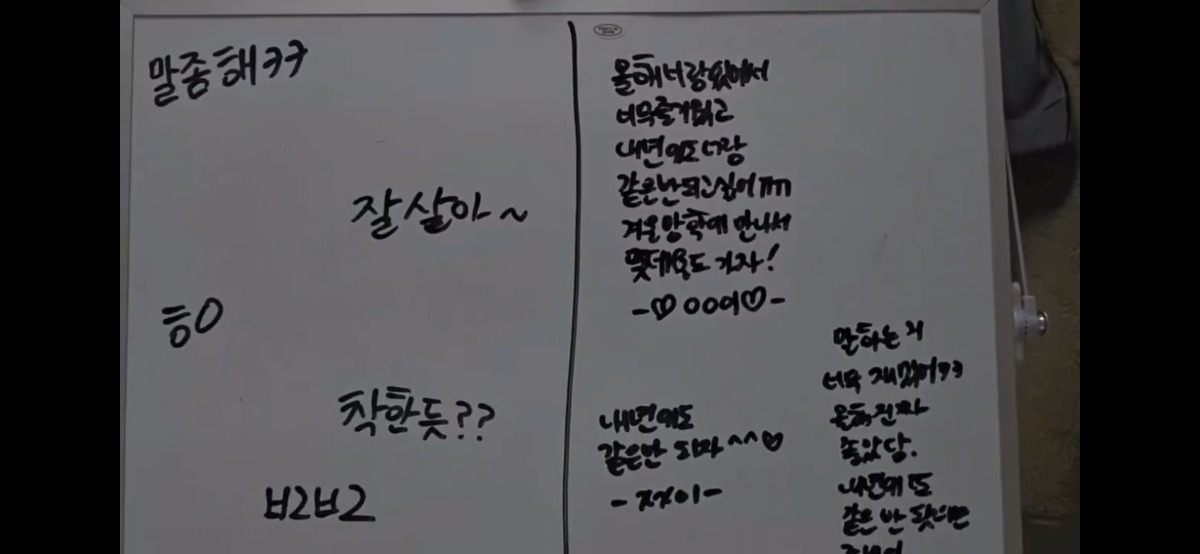 말좀해ㅋㅋ
잘살아~
흥ㅇ
착한듯??
ㅂ2ㅂ2
올해 너랑 있어서
너무 즐거웠고
내년에도 너랑
같은반 되고싶어ㅠㅠ
겨울방학에 만나서
롯데월드 가자!
-♡ㅇㅇ이♡-
내년에도
같은반 되자^^♡
-ㅈㅈ이-
말하는거
너무 재밌어ㅋㅋ
올해 진짜
좋았당.
내년에도
같은 반 됐으면